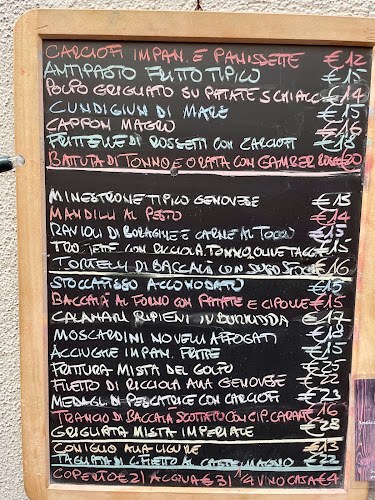 CARCIOFI IMPAN. E PANISSETTE €12
ANTIPASTO FRITTO TIPICO €15
POLPO GRIGLIATO SU PATATE SCHIACC €14
CUNDIGIUN DI MARE €15
CAPPON MAGRO €16
FRITTELLE DI ROSSETTI CON CARCIOFI
BATTUTA DI TONNO E ORATA CON GAMBERI ROSSO €20
MINESTRONE TIPICO GENOVESE €13
MANDILLI AL PESTO €14
RAVIOLI DI BORAGINE E CARNE AL TOCCO
TROFIETTE CON RICCIOLA, TONNO, OLIVE TAGG €15
TORTELLI DI BACCALÀ CON SUGO €16
STOCCAFISSO ACCOMODATO €15
BACCALÀ AL FORNO CON PATATE E CIPOLLE €15
CALAMARI RIPIENI IN BURIDDA €17
MOSCARDINI NOVELLI AFFOGATI
ACCIUGHE IMPAN. FRITTE
FRITTURA MISTA DEL GOLFO
FILETTO DI RICCIOLA ALLA GENOVESE €22
MEDAGL. DI PESCATRICE CON CARCIOFI €23
TRANCIO DI BACCALÀ SCOTTATO CON CIP. CARAM €16
GRIGLIATA MISTA IMPERIALE €28
CONIGLIO ALLA LIGURE €13
TAGLIATA DI FILETTO AL CASTELMAGNO €22
COPERTO €2 ACQUA €3 VINO CASA €4